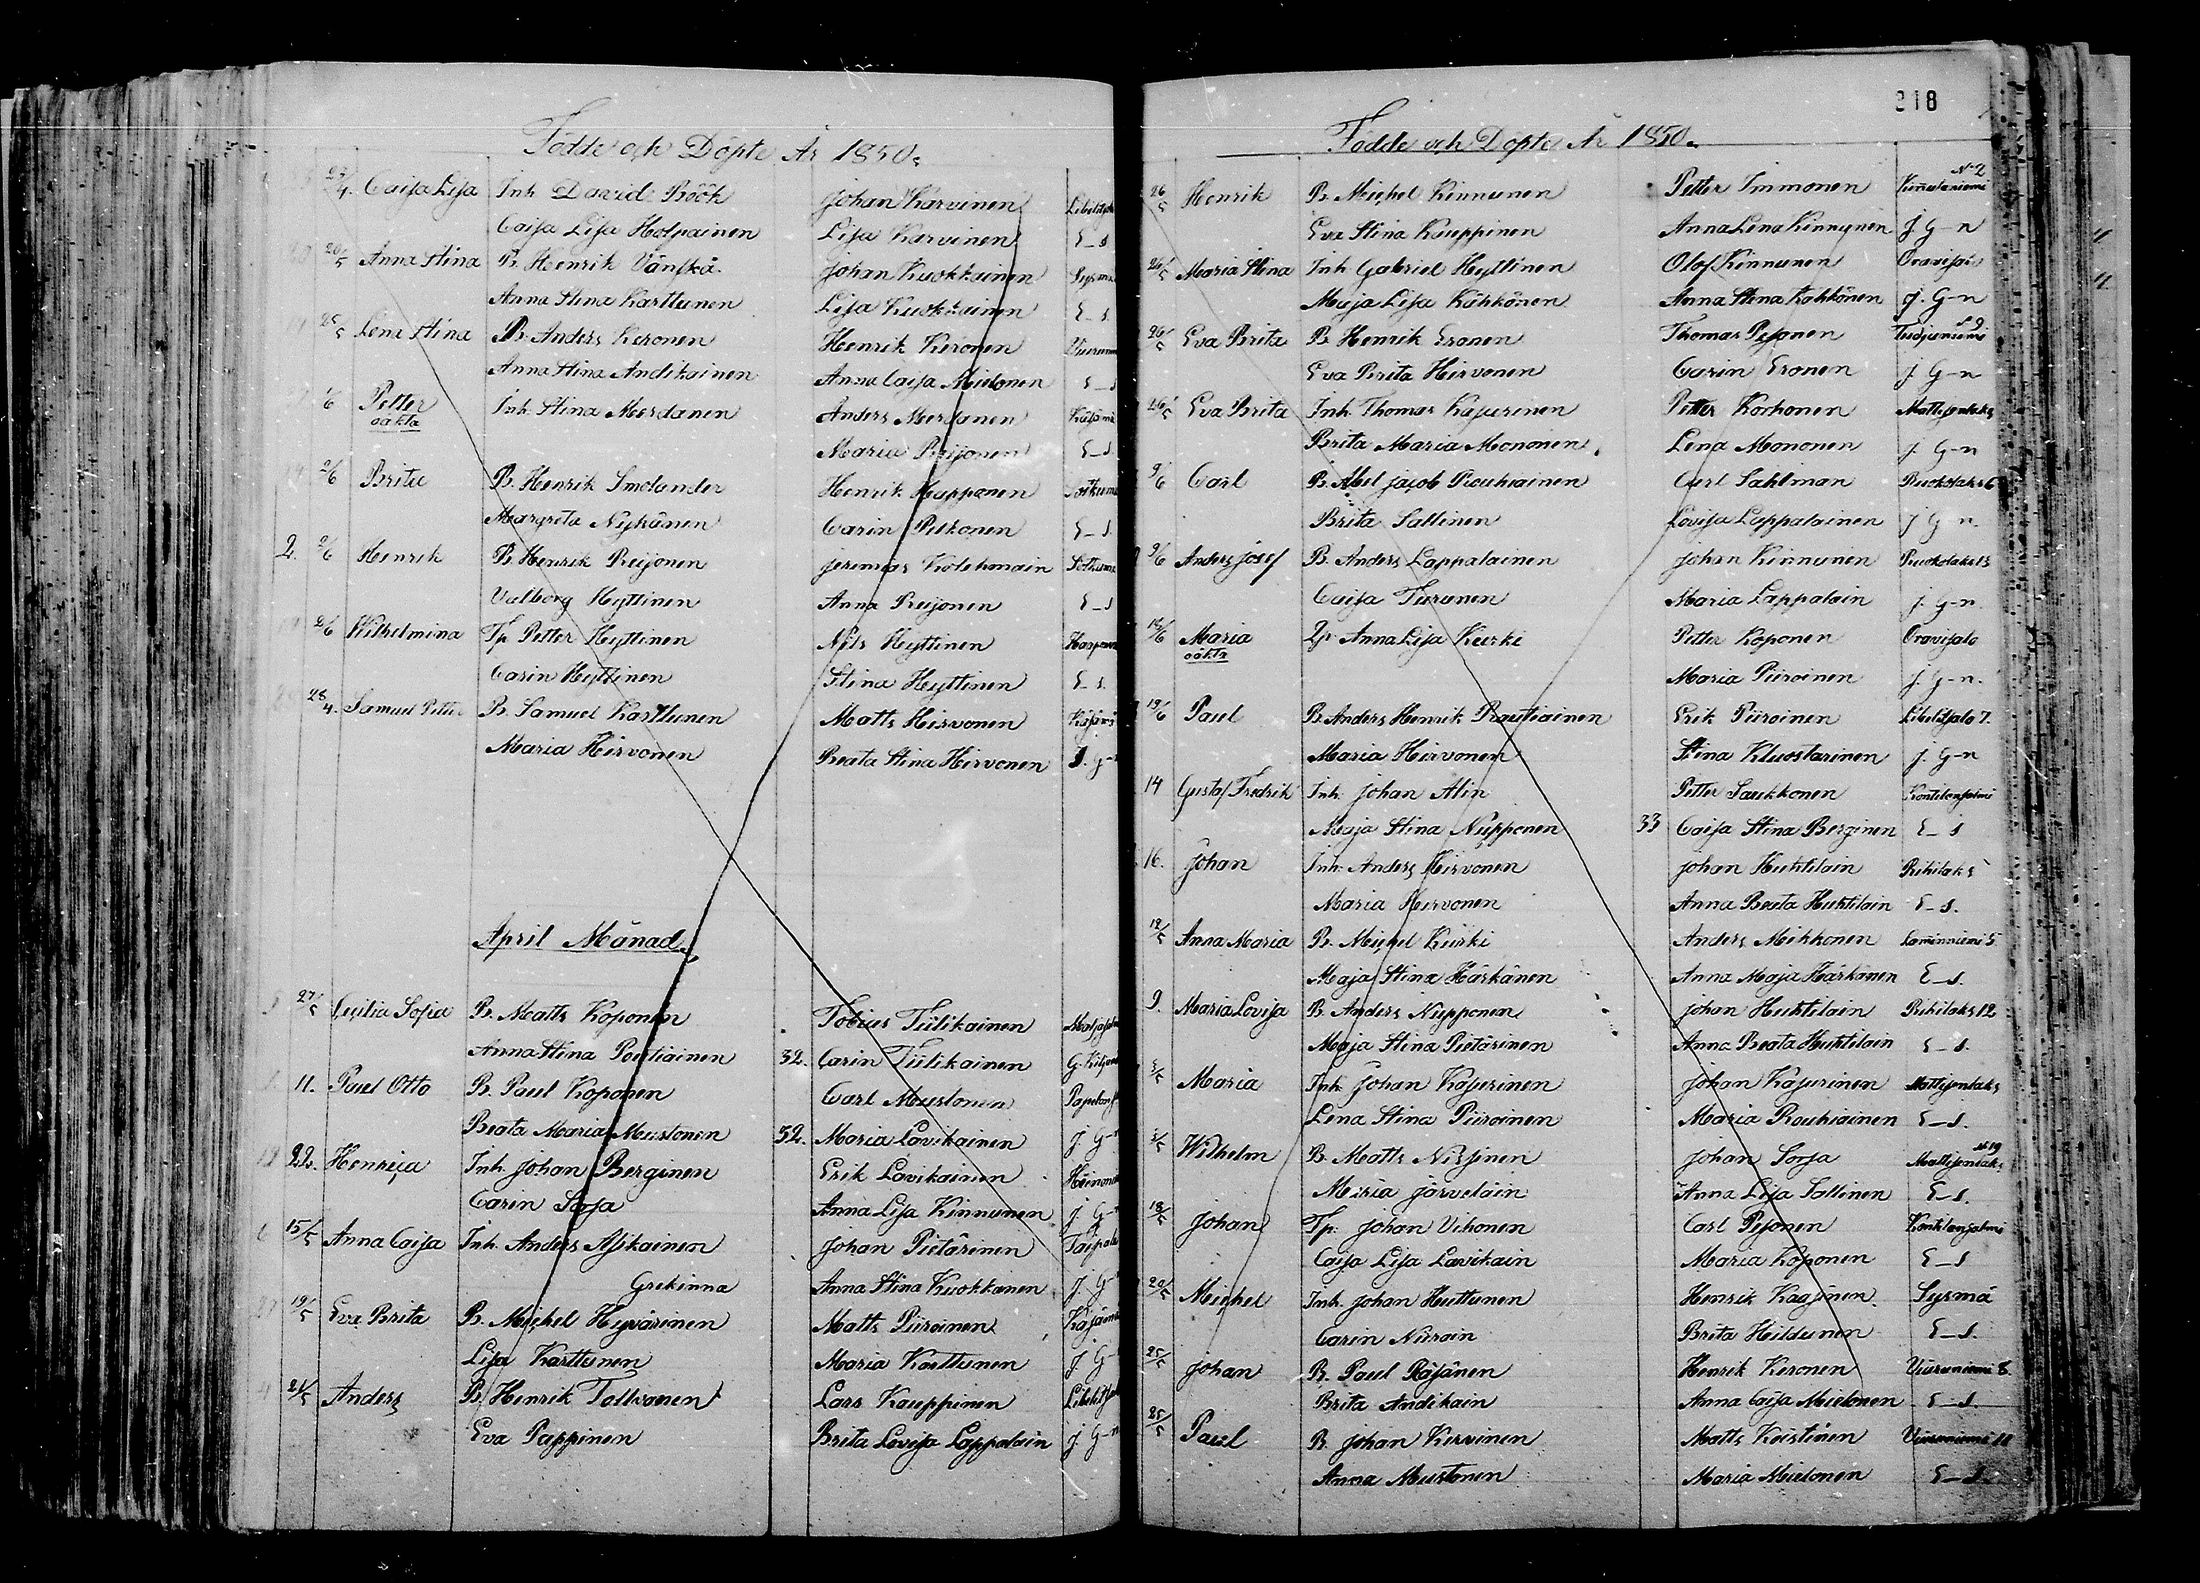 Födde och Döpte År 1850.
23/4. Caisa Lisa Inh David Böök Johan Karvinen
Caisa Lisa Holpainen Lisa Karvinen E_s
20/5 Anna Stina B. Henrik Vänskä Johan Kuokkainen
Anna Stina Karttunen Lisa Kuokkainen E_s
25/5 Lena Stina B. Anders Keronen Henrik Keronen
Anna Stina Andikainen Anna Caisa Mielonen E_s
1/6 Petter Inh. Stina Mertanen Anders Mertanen
oäkta
Maria Reijonen E_s
2/6 Brita B. Henrik Smolander Henrik Kupponen
Margreta Nykänen Carin Pitkonen E_s
2. 2/6 Henrik B. Henrik Reijonen Jeremias Kolehmain
Valborg Hyttinen Anna Reijonen E_s
2/6 Wilhelmina Tp Petter Hyttinen Nils Hyttinen
Carin Hyttinen Stina Hyttinen E_s.
28/4. Samuel Petter B. Samuel Karttunen Matts Hirvonen
Maria Hirvonen Beata Stina Hirvonen
April Månad
27/5 Cecilia Sofia B. Matts Koponen Tobias Tiilikainen
Anna Stina Poutiainen 32. Carin Tiilikainen
11. Paul Otto B. Paul Koponen Carl Mustonen
Beata Maria Mustonen 32. Maria Lavikainen J G-n
22. Henrica Inh. Johan Berginen Erik Lavikainen
Carin Sorsa Anna Lisa Kinnunen J G-n
15/5 Anna Caisa Inh. Anders Asikainen Johan Pietärinen
Grekinna Anna Stina Kuokkanen
19/5 Eva Brita B. Michel Hyvärinen Matts Piiroinen
Lisa Karttunen Maria Karttunen
21/5 Anders B. Henrik Tolvanen Lars Kauppinen
Eva Pappinen Brita Lovisa Lappalain J G-n
218
Födde och Döpte År 1850.
26/5 Henrik B. Michel Kinnunen Petter Immonen No 2 Kinnulaniemi
Eva Stina Kauppinen Anna Lena Kinnunen J. G-n
26/5 Maria Stina Inh Gabriel Hyttinen Olof Kinnunen Oravisalo
Maja Lisa Kähkönen Anna Stina Kähkönen J. G-n
26/5 Eva Brita B Henrik Eronen Thomas Pesonen
Eva Brita Hirvonen Carin Eronen J. G-n
26/5 Eva Brita Inh. Thomas Kajurinen Petter Korhonen Mattisenlaks
Brita Maria Mononen. Lena Mononen J. G-n
9/6 Carl B. Abel Jacob Rouhiainen Carl Sahlman Ruokolaks 6
Brita Sallinen Lovisa Lappalainen J G n.
9/6 Anders Josef B. Anders Lappalainen Johan Kinnunen Ruokolaks 13
Caisa Turunen Maria Lappalain J. G-n.
15/6 Maria Anna Lisa Kurki Petter Koponen Oravisalo
oäkta
Maria Piiroinen J. G-n.
19/6 Paul B. Anders Henrik Rautiainen Erik Piiroinen Libelitsalo 7.
Maria Hirvonen Stina Kluostarinen J. G-n
14 Gustaf Fredrik Inh. Johan Alin Petter Saukkonen Kontilansalmi
Maja Stina Nupponen 33 Caisa Stina Berginen E_s
16. Johan Inh. Anders Hirvonen Johan Huhtilain Rihilaks
Maria Hirvonen Anna Beata Huhtilain E_s.
12/5 Anna Maria B. Michel Kurki Anders Mikkonen Laminniemi 5
Maja Stina Härkänen Anna Maja Härkänen E_s.
9. Maria Lovisa B. Anders Nupponen Johan Huhtilain Rihilaks 12
Maja Stina Pietärinen Anna Beata Huhtilain E_s.
5/5 Maria Inh. Johan Kajurinen Johan Kajurinen Mattisenlaks
Lena Stina Piiroinen Maria Rouhiainen E_s.
5/5 Wilhelm B. Matts Nissinen Johan Sorsa No 19 Mattisenlaks
Maria Järveläin Anna Lisa Sallinen E_s.
18/5 Johan Tp. Johan Vihonen Carl Pesonen Kontilansalmi
Caisa Lisa Lavikain Maria Koponen E_s
20/5 Michel Inh. Johan Huttunen Henrik Kaasinen Sysmä
Carin Niiroin Brita Hildunen E_s.
25/5 Johan B. Paul Räsänen Henrik Keronen Viuruniemi 8
Brita Andikain Anna Caisa Mielonen E_s.
25/5 Paul B. Johan Kervinen Matts Koistinen Viuruniemi 11
Anna Mustonen Maria Mielonen E_s